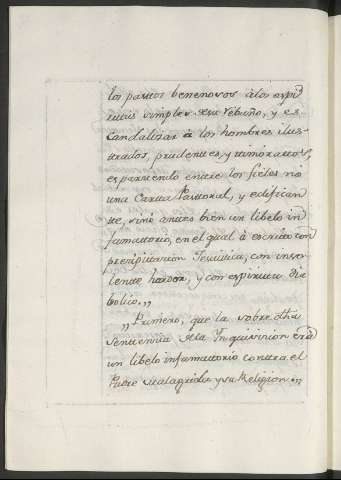 los pastos benenosos à los espi
ritus simples de su rebaño, y es
candalizar à los hombres ilus
trados, prudentes, y timoratos,
esparciendo entre los fieles no
una Carta Pastoral, y edifican
te, sinó antes bien un libelo in
famattorio, en el qual à escrito con
precipitacion Jesuitica, con inso
lente hardor, y con espiritu dia
bolico.,,
,,Primero, que la sobre dha
Sentencia de la Inquisision era
un libelo infamattorio contra el
Padre Malagrida y su Religion